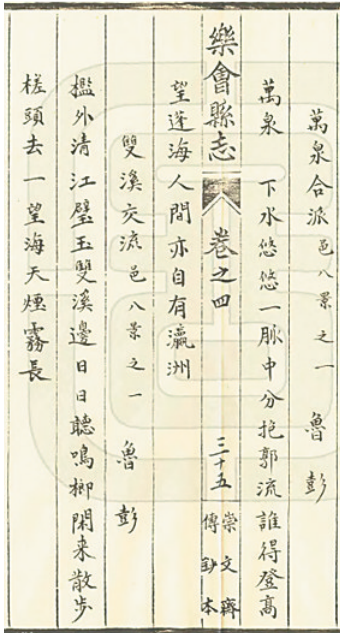 萬泉合派 邑八景之一 魯彭
萬泉 下水悠悠一脉中分抱郭流誰得登高
樂會縣志 卷之四 三十五 崇文齋傳鈔本
望蓬海人間亦自有瀛洲
雙溪交流 邑八景之一 魯彭
檻外清江璧玉雙溪邊日日聽鳴榔閑来散步
槎頭去一望海天煙霧長